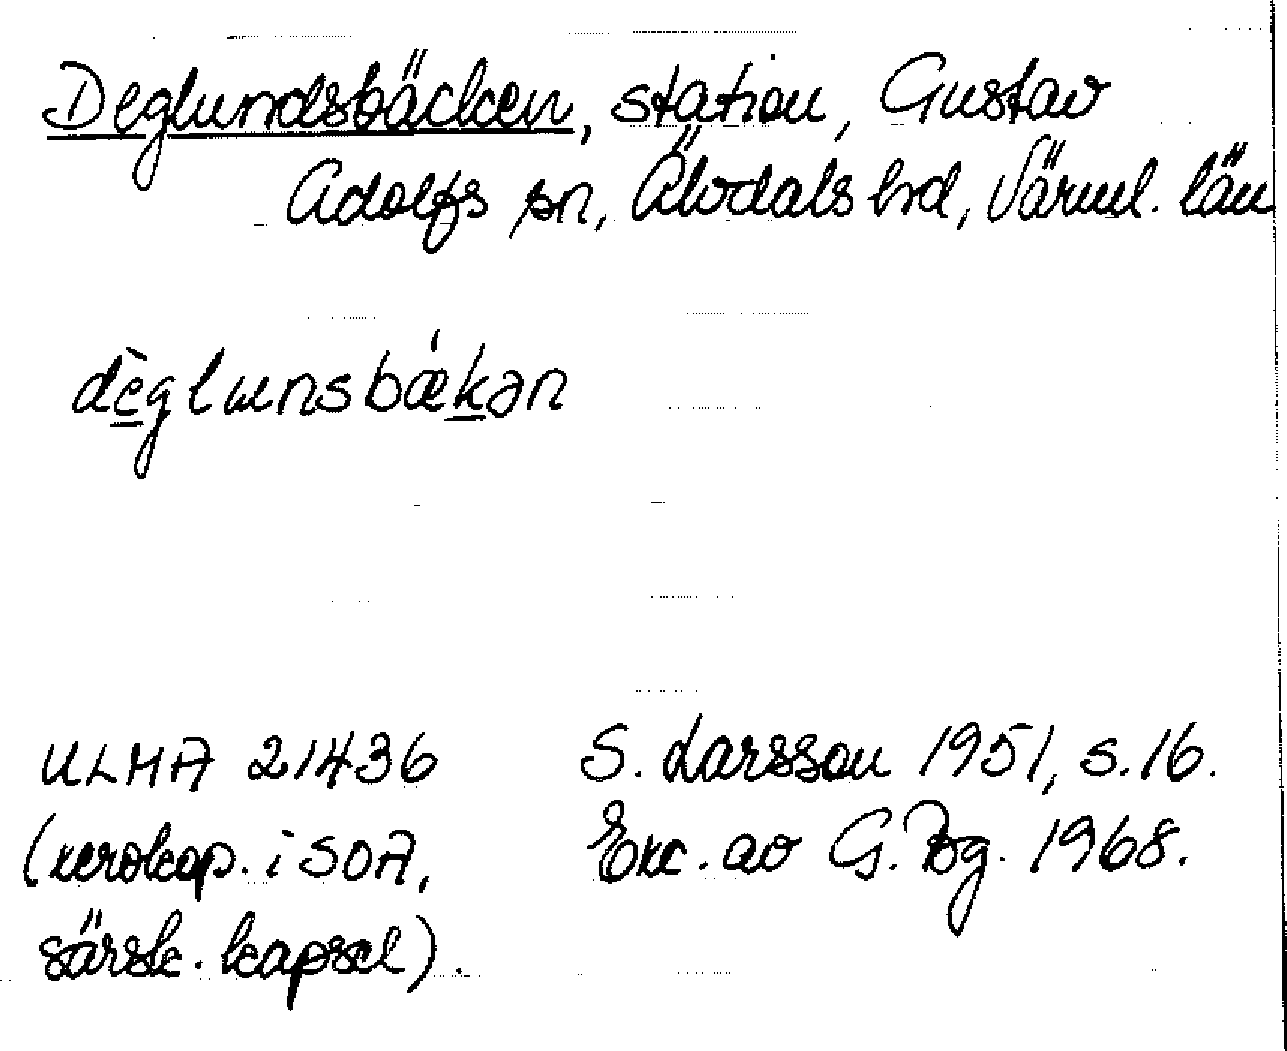 Deglundsbäcken, station, Gustav
Adolfs sn, Älvdals hd, Värml. län
dèglunsbǽkən
ULMA 21436
(xerokop. i SOA,
särsk. kapsel).
S. Larsson 1951, s. 16.
Exc. av G. Bg. 1968.